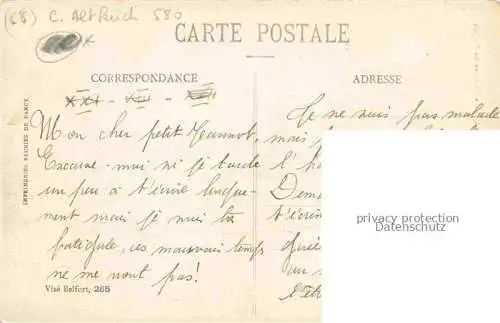 (68) C. Altkirch 580
CARTE POSTALE
CORRESPONDANCE
ADRESSE
IMPRIMERIES REUNIES DE NANCY
Mon cher petit Jeannot,
Excuse-moi si je tarde
un peu à t'écrire longue-
ment mais je suis très
fatiguée, ces mauvais temps
ne me vont pas!
Visé Belfort, 265
Je ne suis pas malade
mais
l'h
Dema
t'écri
guéri
au
l'Et
privacy protection
Datenschutz